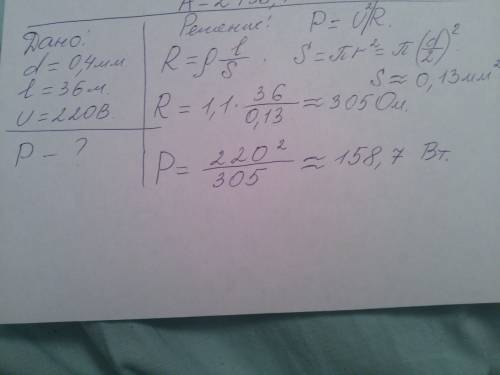 Дано:
d = 0,4 мм
l = 36 м.
U = 220 В.
P - ?
Решение: P = U²/R.
R = ρ l/S . S = πr² = π(d/2)².
S ≈ 0,13 мм²
R = 1,1 · 36/0,13 ≈ 305 Ом.
P = 220²/305 ≈ 158,7 Вт.